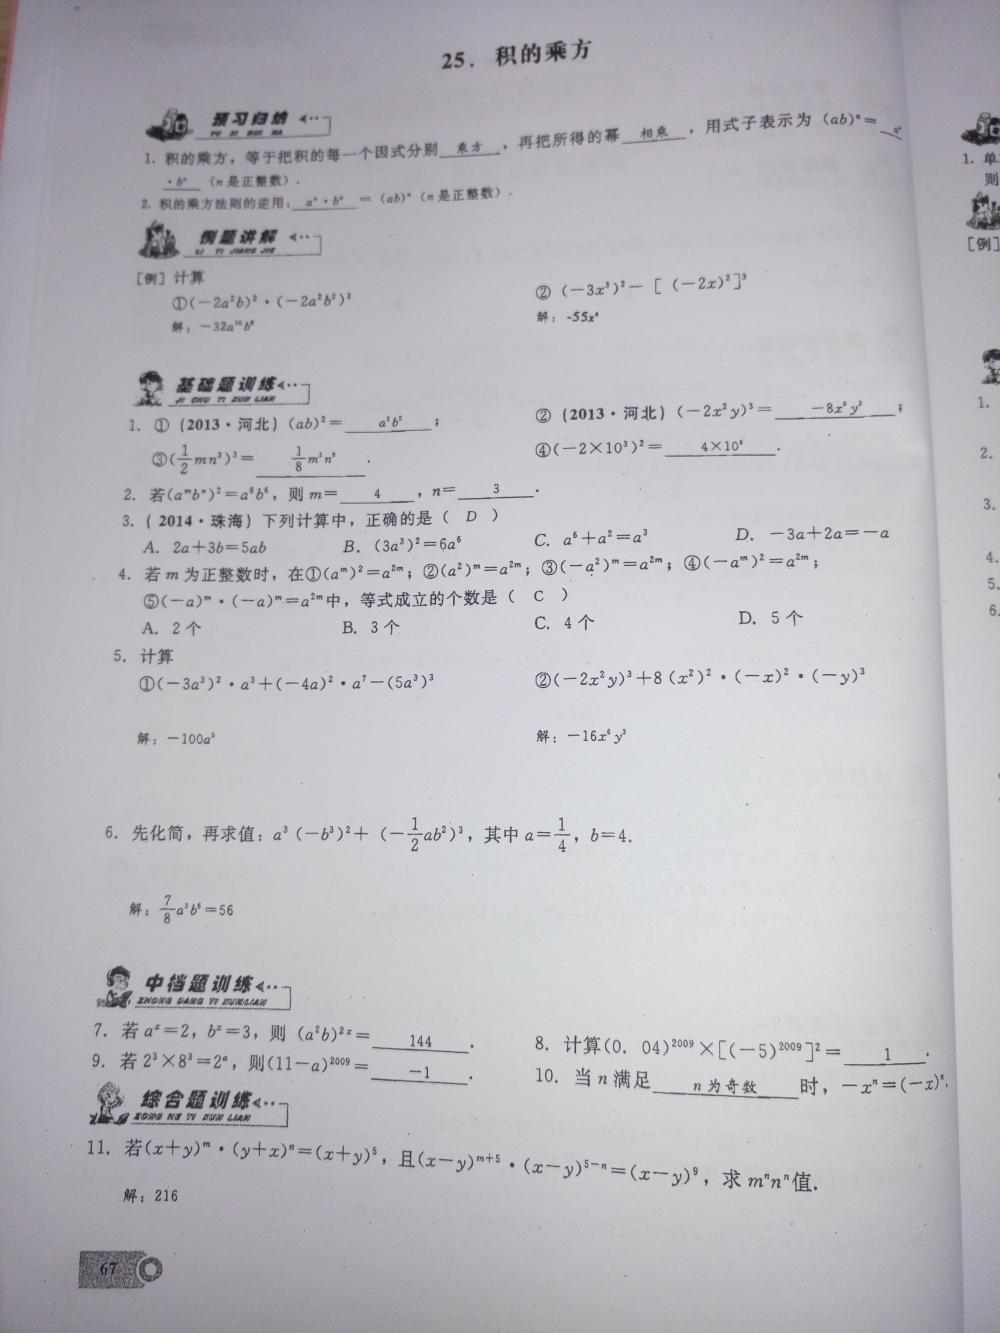 25. 积的乘方
预习归纳
YU XI GUI NA
1. 积的乘方，等于把积的每一个因式分别 乘方 ，再把所得的幂 相乘 ，用式子表示为 (ab)ⁿ= aⁿ
·bⁿ (n 是正整数).
2. 积的乘方法则的逆用： aⁿ·bⁿ =(ab)ⁿ (n 是正整数).
例题讲解
LI TI JIANG JIE
[例] 计算
①(-2a²b)²·(-2a²b²)³ ② (-3x³)²-[(-2x)²]³
解：-32a¹⁰b⁸ 解：-55x⁶
基础题训练
JI CHU TI XUN LIAN
1. ① (2013·河北) (ab)²= a²b² ； ② (2013·河北) (-2x²y)³= -8x⁶y³ ；
③(1/2 mn³)³= 1/8 m³n⁹ . ④(-2×10³)²= 4×10⁶ .
2. 若(aᵐbⁿ)²=a⁸b⁶，则 m= 4 ，n= 3 .
3. (2014·珠海) 下列计算中，正确的是 ( D )
A. 2a+3b=5ab B. (3a³)²=6a⁶ C. a⁶+a²=a³ D. -3a+2a=-a
4. 若 m 为正整数时，在①(aᵐ)²=a²ᵐ；②(a²)ᵐ=a²ᵐ；③(-a²)ᵐ=a²ᵐ；④(-aᵐ)²=a²ᵐ；
⑤(-a)ᵐ·(-a)ᵐ=a²ᵐ中，等式成立的个数是 ( C )
A. 2 个 B. 3 个 C. 4 个 D. 5 个
5. 计算
①(-3a³)²·a³+(-4a)²·a⁷-(5a³)³ ②(-2x²y)³+8(x²)²·(-x)²·(-y)³
解：-100a⁹ 解：-16x⁶y³
6. 先化简，再求值：a³(-b³)²+(-1/2 ab²)³，其中 a=1/4，b=4.
解：7/8 a³b⁶=56
中档题训练
ZHONG DANG TI XUN LIAN
7. 若 aˣ=2，bˣ=3，则 (a²b)²ˣ= 144 . 8. 计算(0. 04)²⁰⁰⁹×[(-5)²⁰⁰⁹]²= 1 .
9. 若 2³×8³=2ᵃ，则(11-a)²⁰⁰⁹= -1 . 10. 当 n 满足 n 为奇数 时，-xⁿ=(-x)ⁿ.
综合题训练
ZONG HE TI XUN LIAN
11. 若(x+y)ᵐ·(y+x)ⁿ=(x+y)⁵，且(x-y)ᵐ⁺⁵·(x-y)⁵⁻ⁿ=(x-y)⁹，求 mⁿnⁿ值.
解：216
67
1. 单
则
[例]
1.
2.
3.
4.
5.
6.